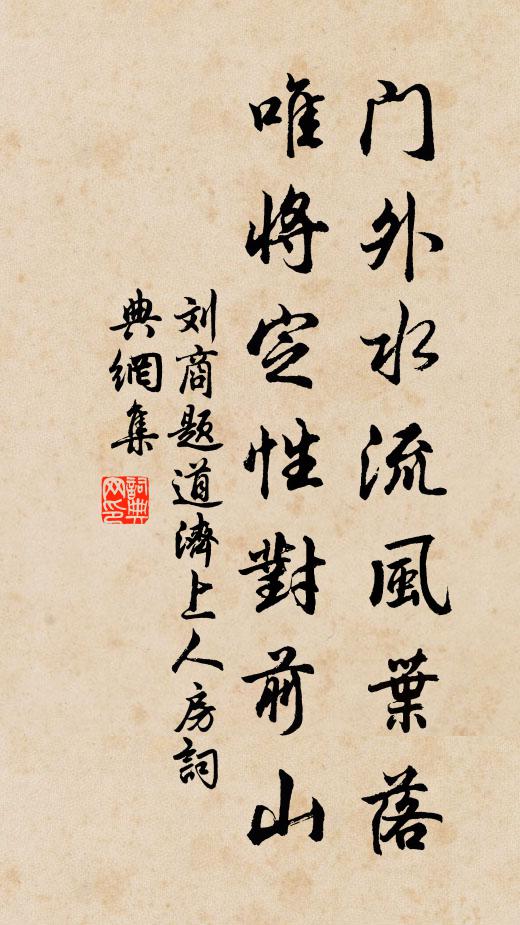 门外水流風葉落
唯將定性對前山
刘商题道濟上人房詞
典網集
詞典网印